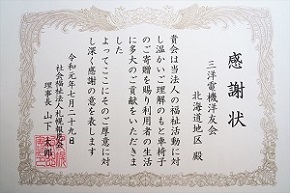 感謝状
三洋電機洋友会
北海道地区 殿
貴会は当法人の福祉活動に対
し温かいご理解のもと車椅子
のご寄贈を賜り利用者の生活
に多大のご貢献をいただきま
した
よってここにそのご厚意に対
し深く感謝の意を表します
令和元年七月二十九日
社会福祉法人札幌報恩会
理事長 山下 太郎